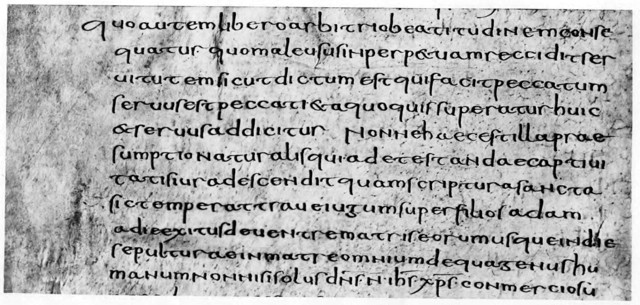 quo autem libero arbitrio beatitudinem conse
quatur quo male usus in perp&uam reccidit ser
uitutem sicut dictum est qui facit peccatum
seruus est peccati & a quo quis superatur huic
& seruus addicitur nonne haec est illa prae
sumptio naturalis quia detestandae captiui
tatis iura descendit quam scriptura sancta
sic temperat graue iugum super filios adam
a die exitus de uentre matris eorum usque in die
sepulturae in matre omnium de qua genus hu
manum non nisi solus dns n ihs xps conmercio su